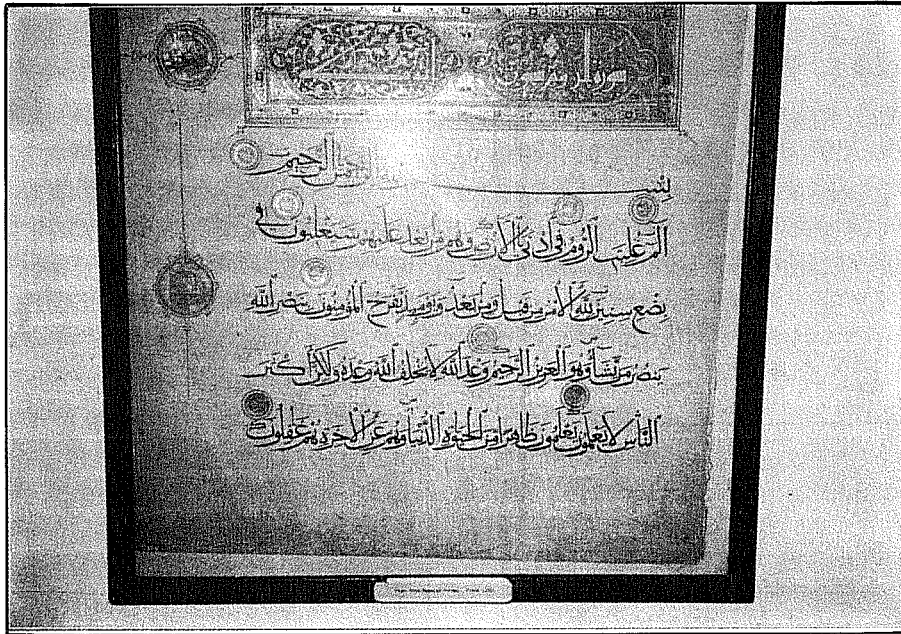 سورة الروم ستون
بسم الرحمن الرحيم
الم غلبت الروم في أدنى الأرض وهم من بعد غلبهم سيغلبون في
بضع سنين لله الأمر من قبل ومن بعد ويومئذ يفرح المؤمنون بنصر الله
ينصر من يشاء وهو العزيز الرحيم وعد الله لا يخلف الله وعده ولكن أكثر
الناس لا يعلمون يعلمون ظاهرا من الحيوة الدنيا وهم عن الآخرة هم غافلون